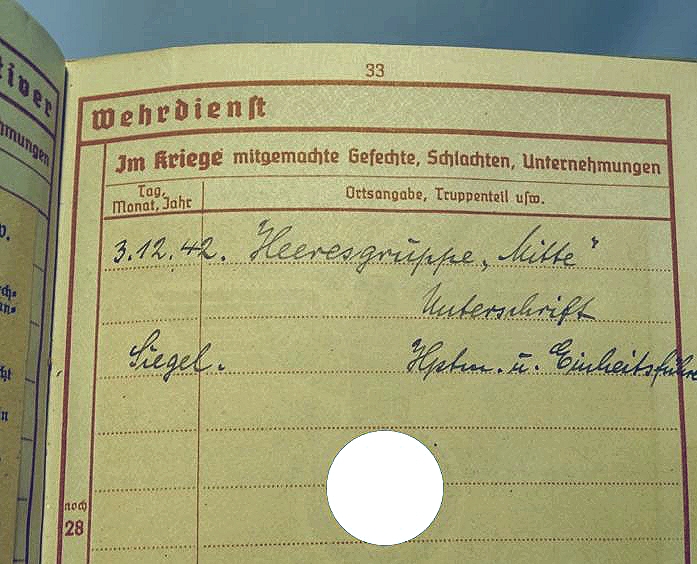 33
Wehrdienst
Im Kriege mitgemachte Gefechte, Schlachten, Unternehmungen
Tag, Monat, Jahr
Ortsangabe, Truppenteil usw.
3.12.42. Heeresgruppe „Mitte"
Unterschrift
Siegel. Hptm. u. Einheitsführe
noch
28
tiver
hmungen